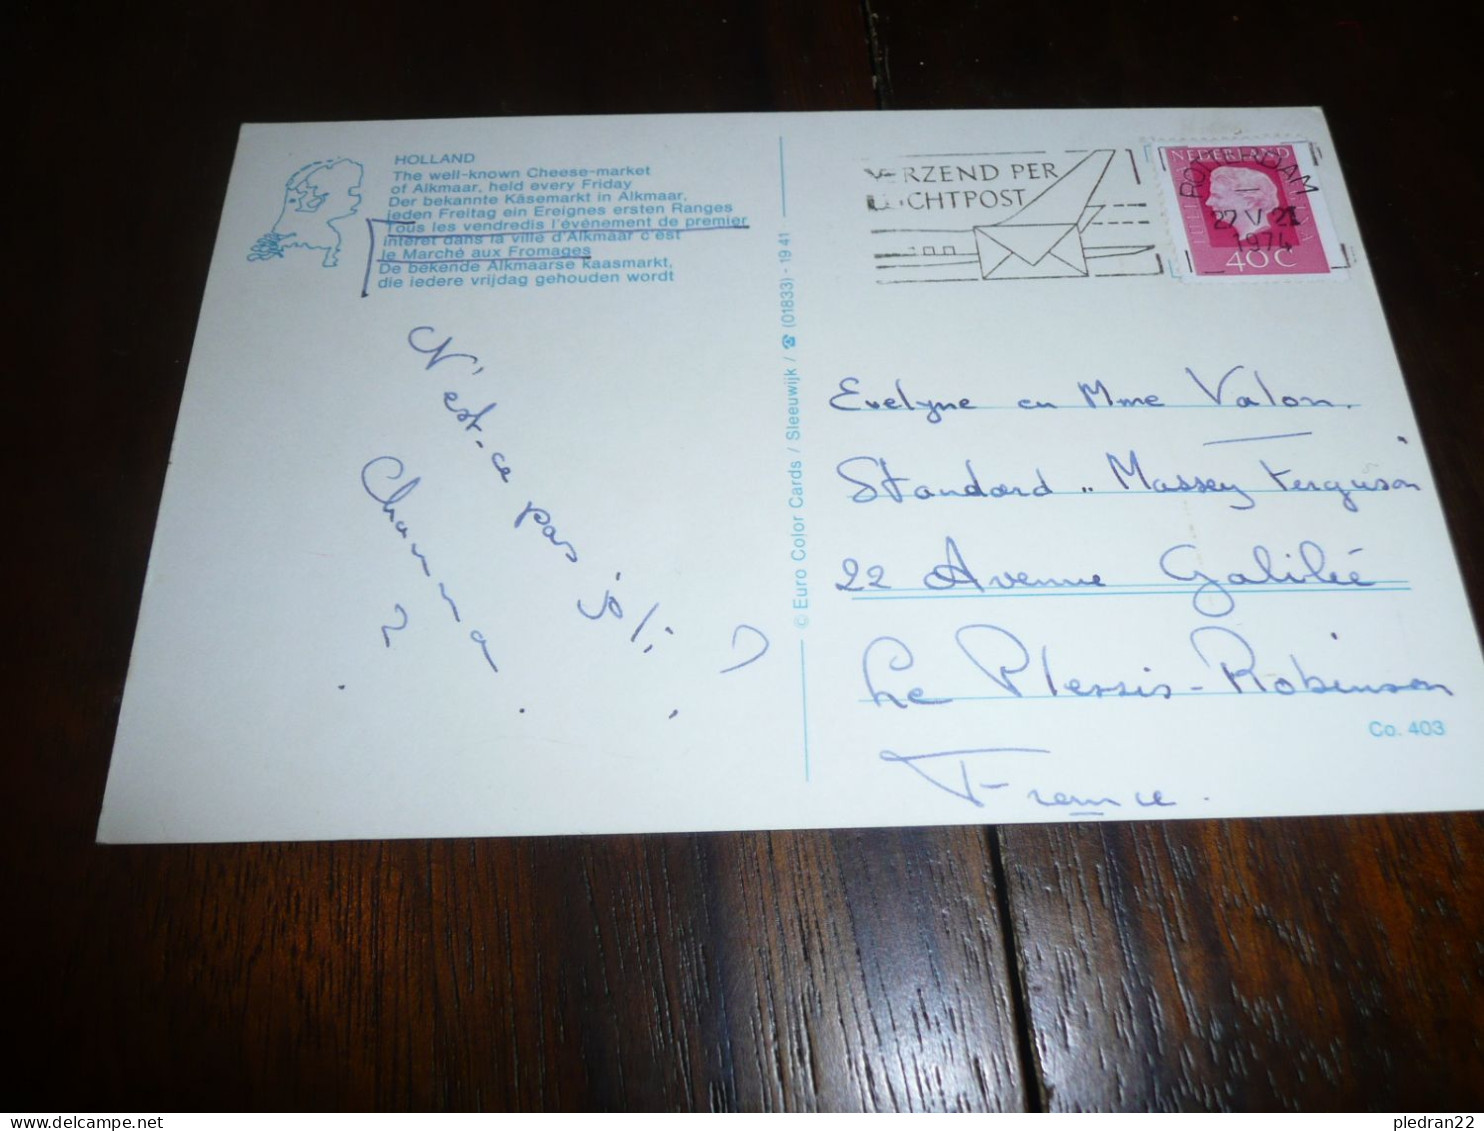 HOLLAND
The well-known Cheese-market
of Alkmaar, held every Friday
Der bekannte Käsemarkt in Alkmaar,
jeden Freitag ein Ereignes ersten Ranges
Tous les vendredis l'événement de premier
intérêt dans la ville d'Alkmaar c'est
le Marché aux Fromages
De bekende Alkmaarse kaasmarkt,
die iedere vrijdag gehouden wordt
N'est-ce pas joli
© Euro Color Cards / Sleeuwijk / ☎ (01833) - 19 41
VERZEND PER
LUCHTPOST
NEDERLAND
ROTTERDAM
27 V 21
1974
40 C
Evelyne Mme Valon.
Standard .. Massey Ferguson
22 Avenue Galilée
Le Plessis-Robinson
France.
Co. 403
pledran22